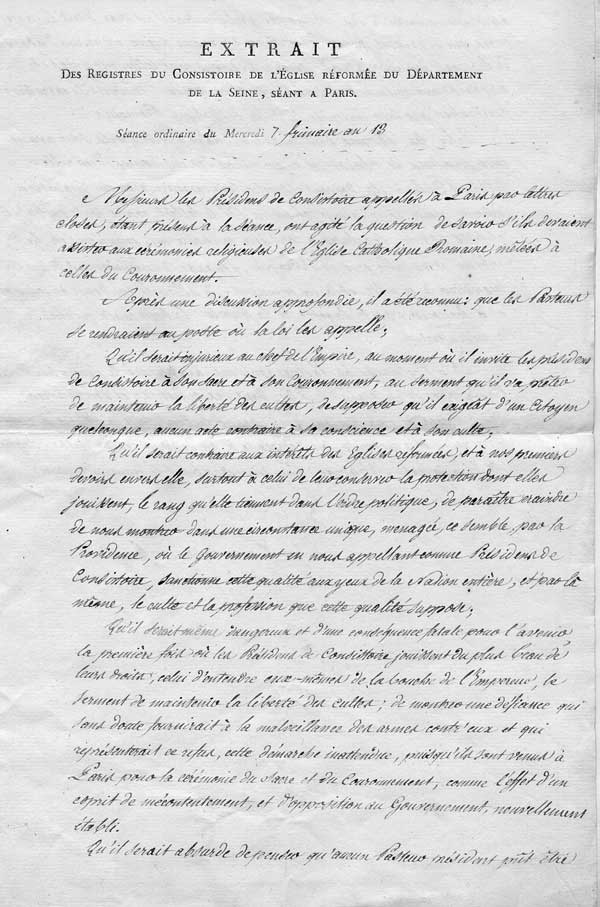 EXTRAIT
DES REGISTRES DU CONSISTOIRE DE L'ÉGLISE RÉFORMÉE DU DÉPARTEMENT
DE LA SEINE, SÉANT A PARIS.
Séance ordinaire du Mercredi 7 frimaire an 13
Messieurs les Présidens de Consistoire appellés à Paris par lettres
closes, étant présens à la séance, ont agité la question de savoir s'ils devaient
assister aux cérémonies religieuses de l'Eglise Catholique Romaine, mêlées à
celles du Couronnement.
Après une discussion approfondie, il a été reconnu: que les Pasteurs
se rendraient au poste où la loi les appelle;
Qu'il serait injurieux au chef de l'Empire, au moment où il invite les présidens
de Consistoire à son Sacre et à son Couronnement, au serment qu'il va prêter
de maintenir la liberté des cultes, de supposer qu'il exigeât d'un Citoyen
quelconque, aucun acte contraire à sa conscience et à son culte,
Qu'il serait contraire aux intérêts des Eglises réformées, et à nos premiers
devoirs envers elle, surtout à celui de leur conserver la protection dont elles
jouissent, le rang qu'elle tiennent dans l'ordre politique, de paraître craindre
de nous montrer dans une circonstance unique, menagée, ce semble par la
Providence, où le Gouvernement en nous appellant comme Présidens de
Consistoire, sanctionne cette qualité aux yeux de la Nation entière, et par là
même, le culte et la profession que cette qualité suppose;
Qu'il serait même dangereux et d'une conséquence fatale pour l'avenir
la première fois où les Présidens de Consistoire jouissent du plus beau de
leurs droits, celui d'entendre eux-mêmes de la bouche de l'Empereur, le
serment de maintenir la liberté des cultes; de montrer une défiance qui
sans doute fournirait à la malveillance des armes contr'eux et qui
représenterait ce refus, cette démarche inattendue, puisqu'ils sont venus à
Paris pour la cérémonie du Sacre et du Couronnement, comme l'effet d'un
esprit de mécontentement, et d'opposition au Gouvernement, nouvellement
établi.
Qu'il serait absurde de penser qu'aucun Pasteur président pût être